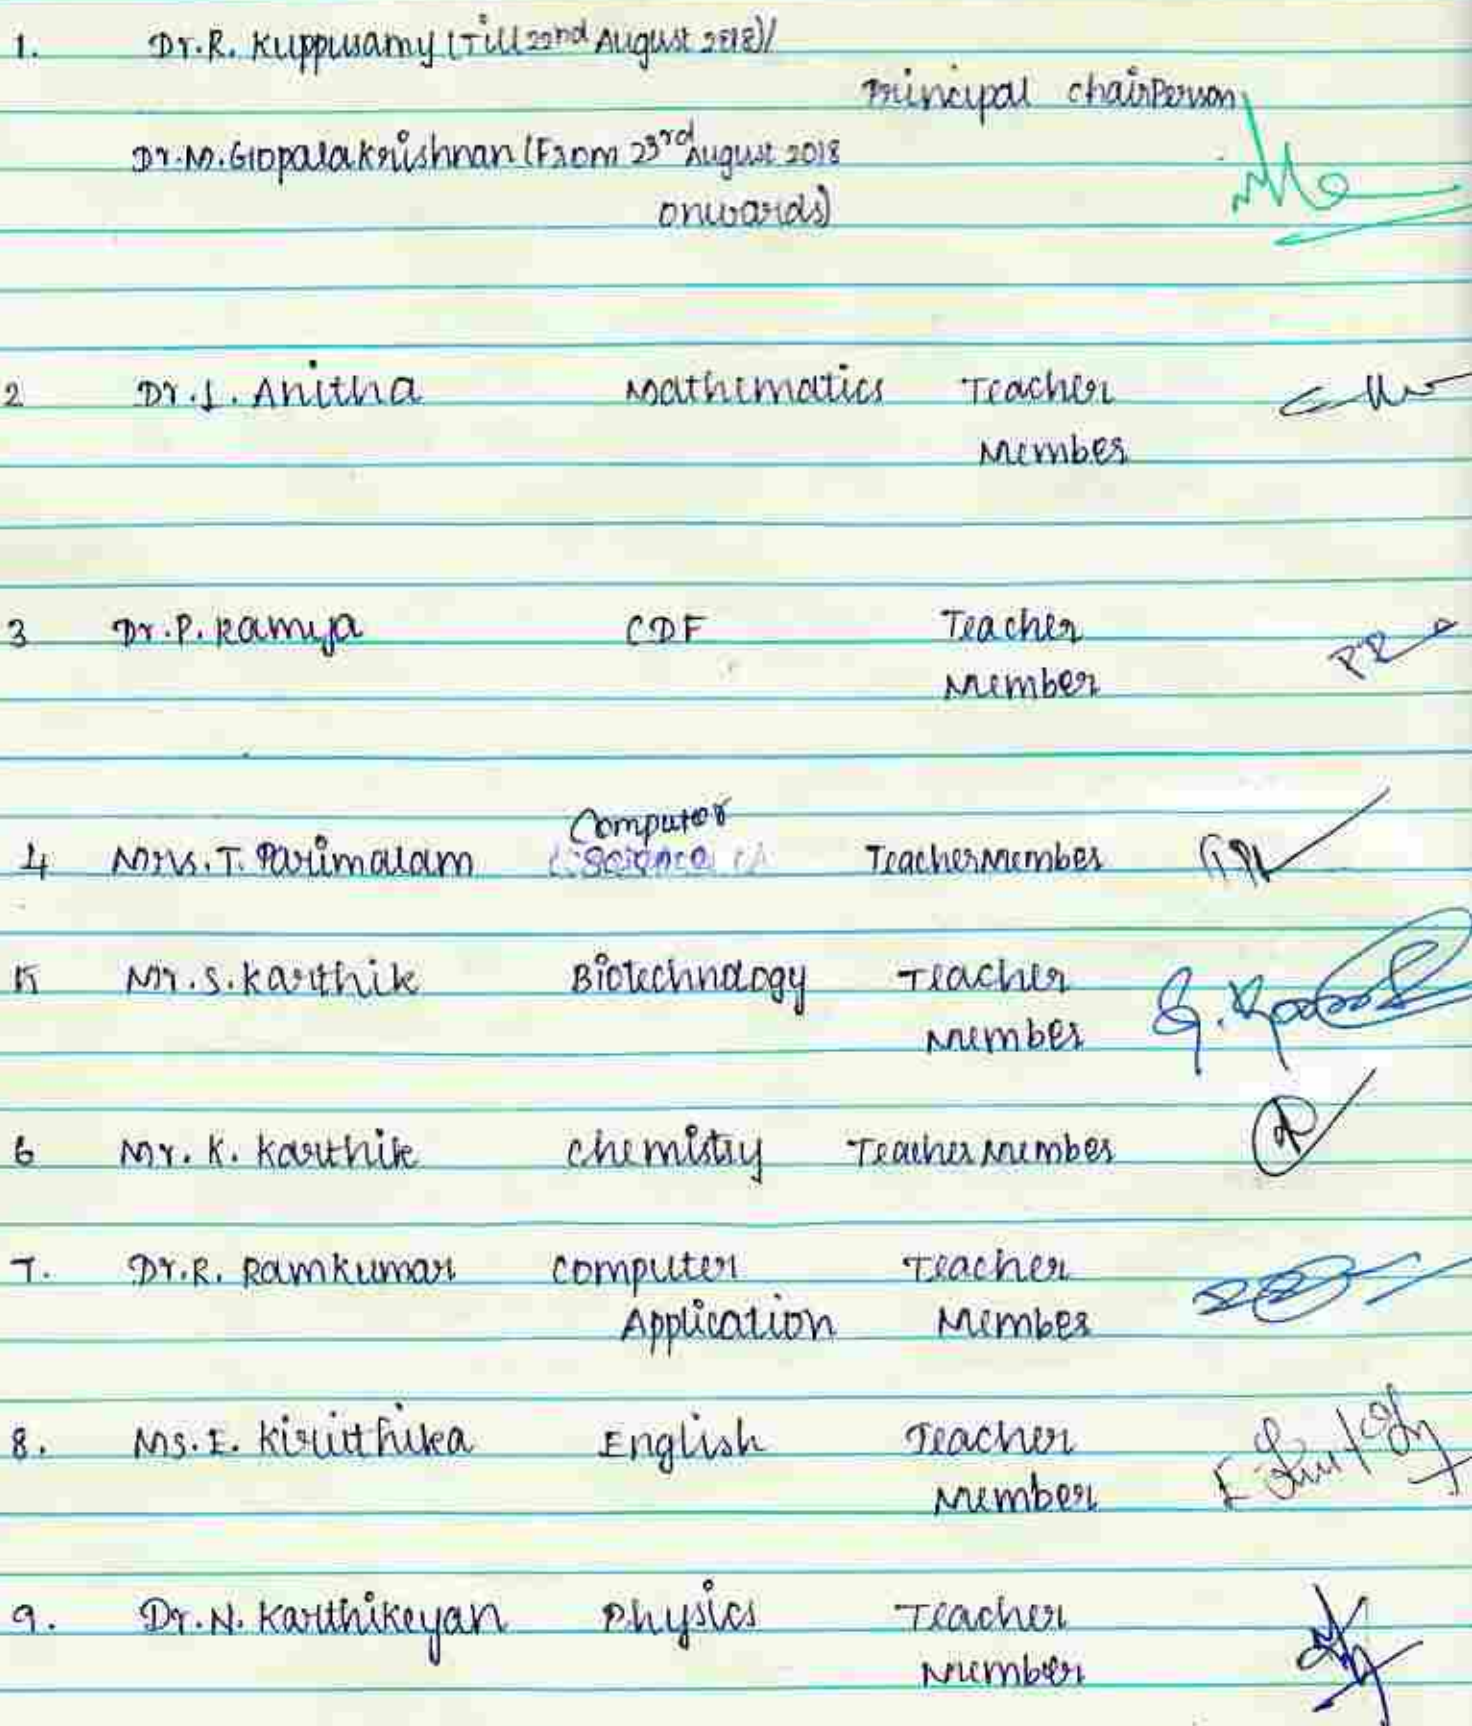 1. Dr. R. Kuppusamy (Till 22nd August 2018)/
Principal Chairperson
Dr. M. Gopalakrishnan (From 23rd August 2018
onwards)
2 Dr. L. Anitha Mathematics Teacher
Member
3 Dr. P. Ramya CDF Teacher
Member
Computer
4 Mrs. T. Parimalam Science Teacher Member
5 Mr. S. Karthik Biotechnology Teacher
Member
6 Mr. K. Karthik Chemistry Teacher Member
7. Dr. R. Ramkumar Computer Teacher
Application Member
8. Ms. E. Kiruthika English Teacher
Member
9. Dr. N. Karthikeyan Physics Teacher
Member